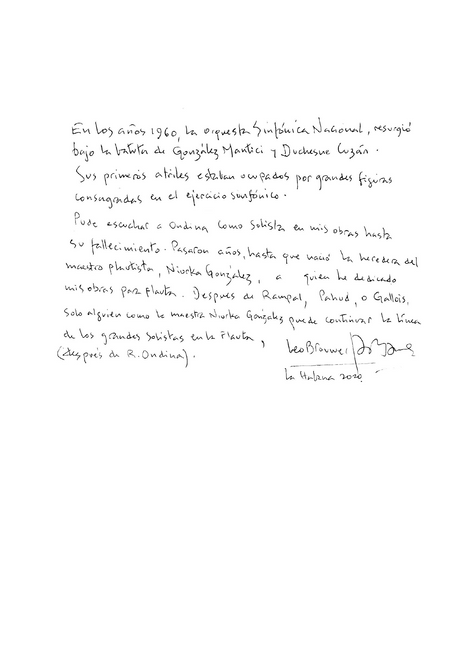 En los años 1960, la orquesta Sinfónica Nacional, resurgió
bajo la batuta de González Mantici y Duchesne Cuzán.
Sus primeros atriles estaban ocupados por grandes figuras
consagradas en el ejercicio sinfónico.
Pude escuchar a Ondina como solista en mis obras hasta
su fallecimiento. Pasaron años, hasta que nació la heredera del
maestro flautista, Niurka González, a quien he dedicado
mis obras para flauta. Despues de Rampal, Pahud, o Gallois,
solo alguien como la maestra Niurka González puede continuar la línea
de los grandes solistas en la Flauta,
(después de R. Ondina).
Leo Brouwer
La Habana 2020